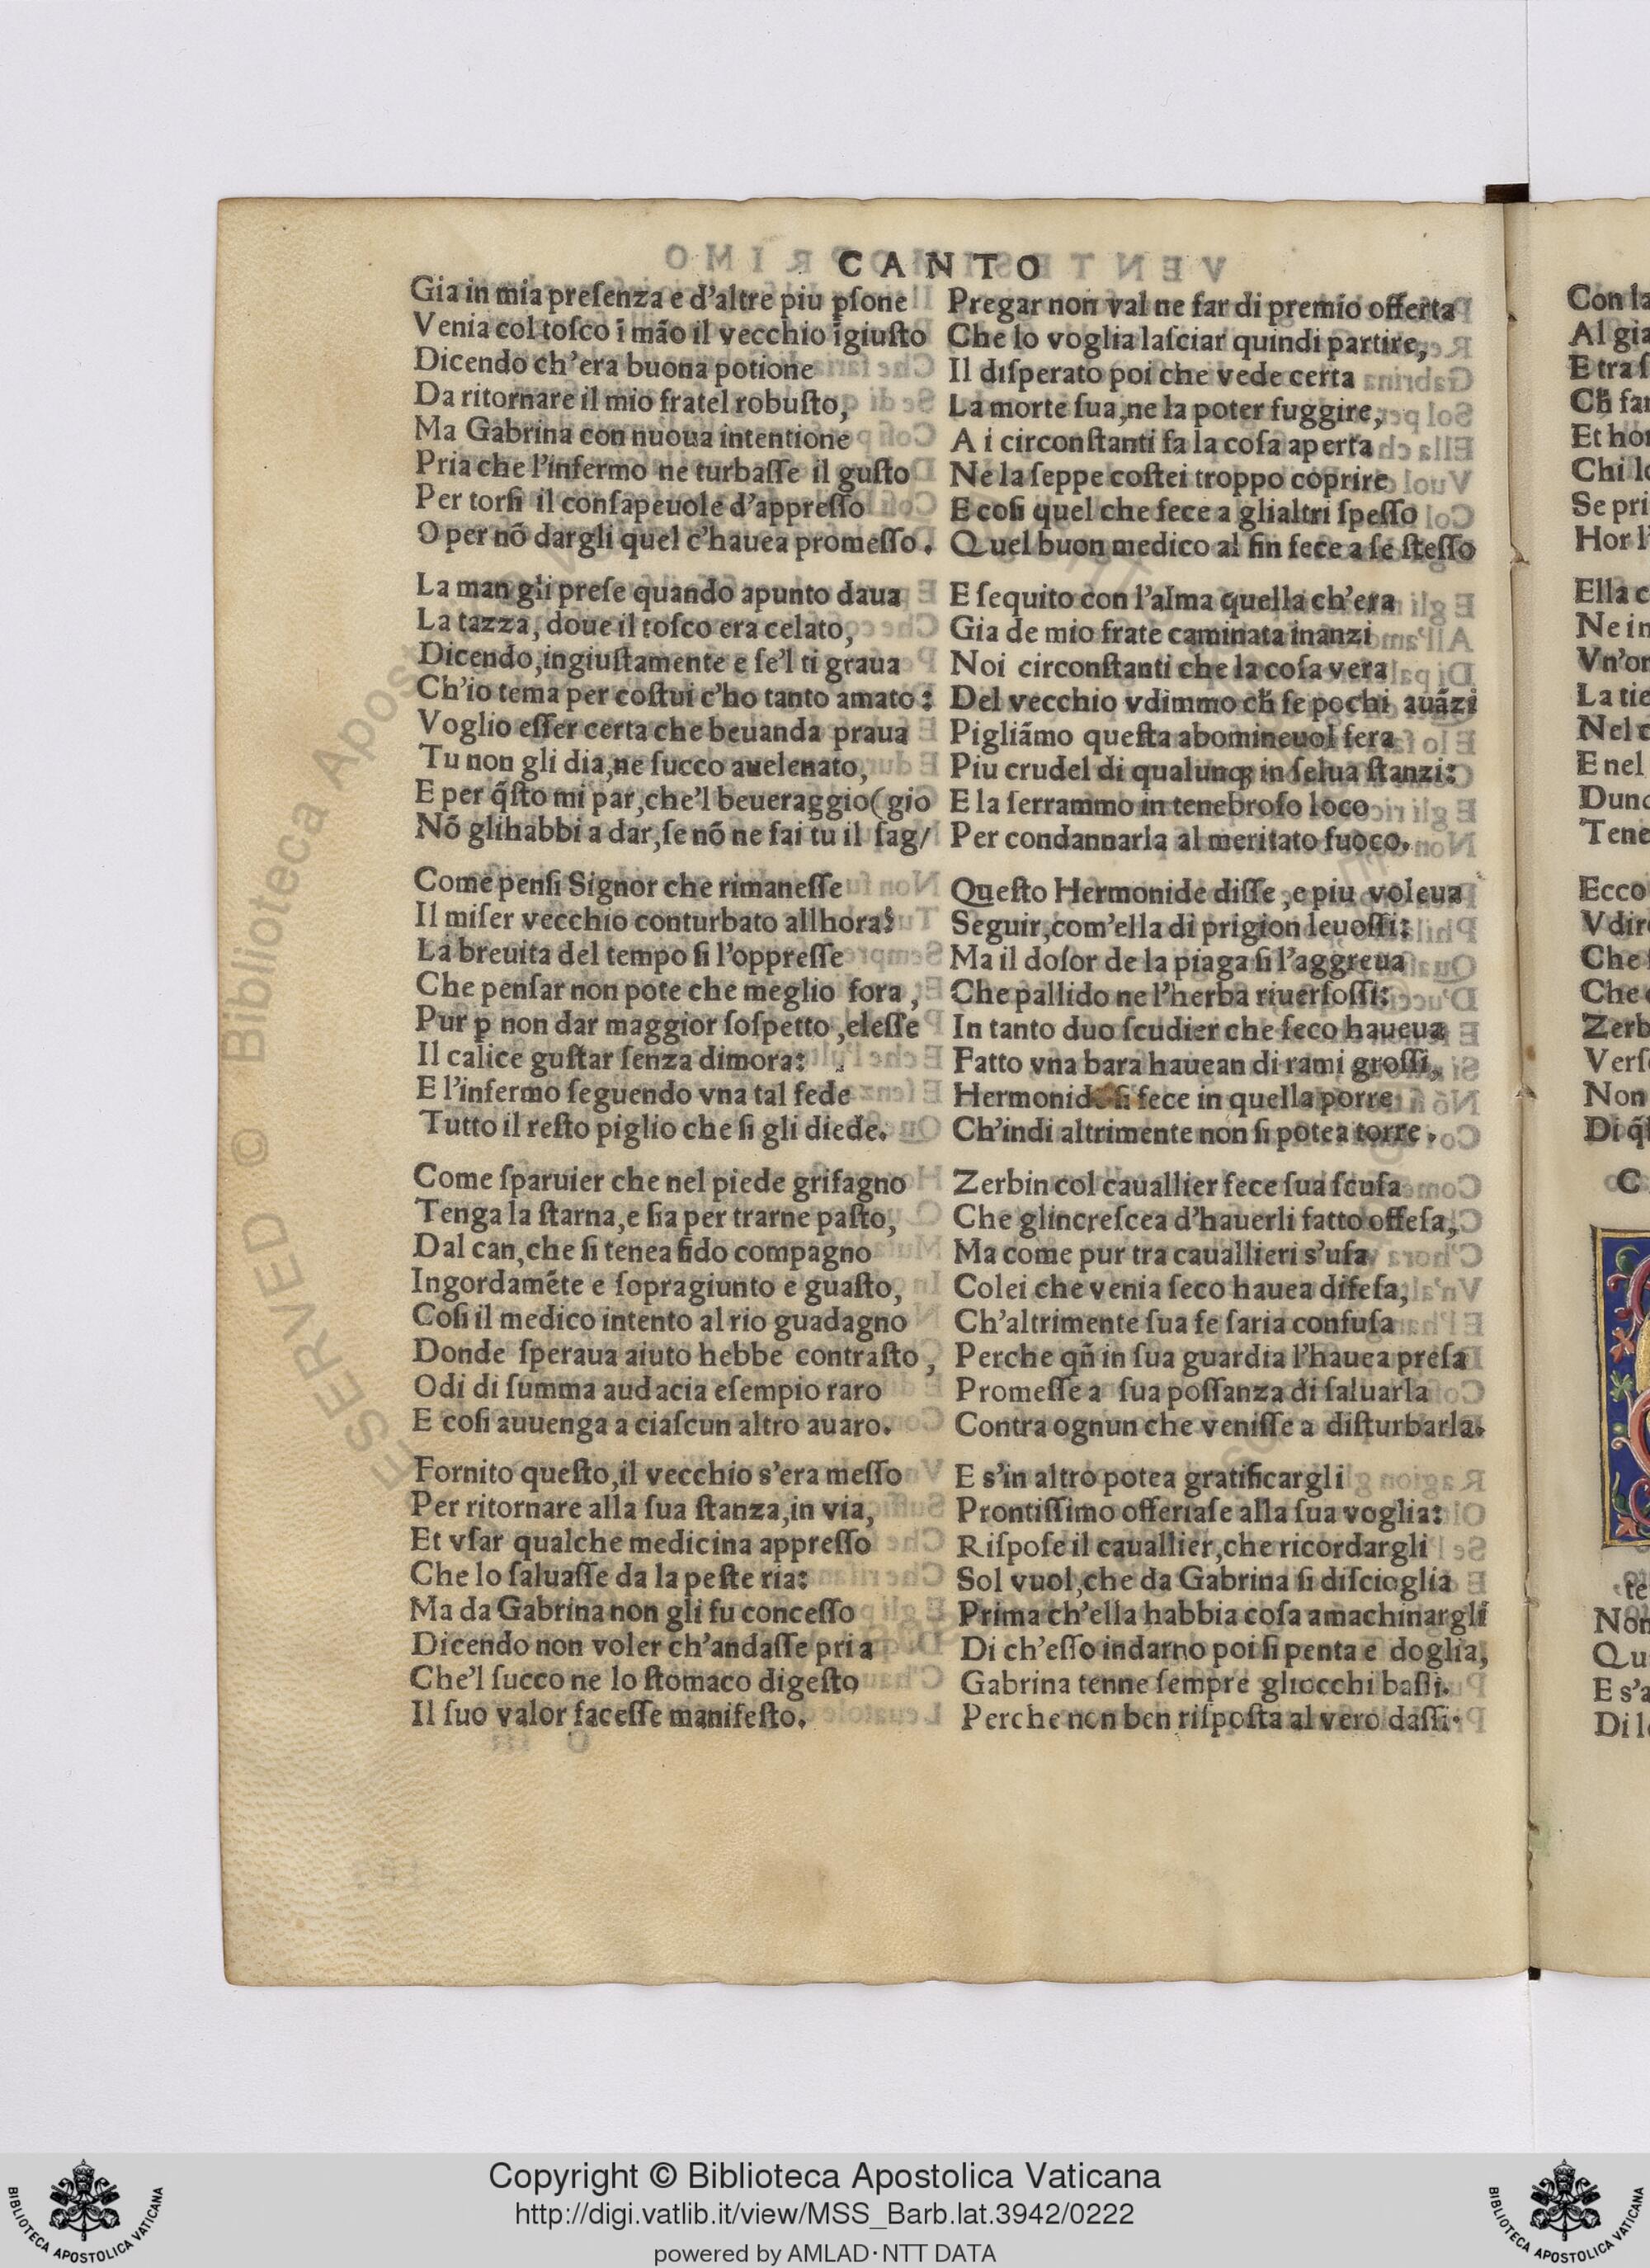 CANTO
Gia in mia preſenza e d'altre piu ꝑſone
Venia col toſco ī mão il vecchio īgiuſto
Dicendo ch'era buona potione
Da ritornare il mio fratel robuſto,
Ma Gabrina con nuoua intentione
Pria che l'infermo ne turbaſſe il guſto
Per torſi il conſapeuole d'appreſſo
O per nõ dargli quel c'hauea promeſſo.
La man gli preſe quando apunto daua
La tazza, doue il toſco era celato,
Dicendo, ingiuſtamente e ſe'l ti graua
Ch'io tema per coſtui c'ho tanto amato:
Voglio eſſer certa che beuanda praua
Tu non gli dia, ne ſucco auelenato,
E per q̃ſto mi par, che'l beueraggio (gio
Nõ glihabbi a dar, ſe nõ ne fai tu il ſag/
Come penſi Signor che rimaneſſe
Il miſer vecchio conturbato allhora?
La breuita del tempo ſi l'oppreſſe
Che penſar non pote che meglio fora,
Pur ꝑ non dar maggior ſoſpetto, eleſſe
Il calice guſtar ſenza dimora:
E l'infermo ſeguendo vna tal fede
Tutto il reſto piglio che ſi gli diede.
Come ſparuier che nel piede grifagno
Tenga la ſtarna, e ſia per trarne paſto,
Dal can, che ſi tenea fido compagno
Ingordamẽte e ſopragiunto e guaſto,
Coſi il medico intento al rio guadagno
Donde ſperaua aiuto hebbe contraſto,
Odi di ſumma audacia eſempio raro
E coſi auuenga a ciaſcun altro auaro.
Fornito queſto, il vecchio s'era meſſo
Per ritornare alla ſua ſtanza, in via,
Et vſar qualche medicina appreſſo
Che lo ſaluaſſe da la peſte ria:
Ma da Gabrina non gli fu conceſſo
Dicendo non voler ch'andaſſe pria
Che'l ſucco ne lo ſtomaco digeſto
Il ſuo valor faceſſe manifeſto.
Pregar non val ne far di premio offerta
Che lo voglia laſciar quindi partire,
Il diſperato poi che vede certa
La morte ſua, ne la poter fuggire,
A i circonſtanti fa la coſa aperta
Ne la ſeppe coſtei troppo coprire
E coſi quel che fece a glialtri ſpeſſo
Quel buon medico al fin fece a ſe ſteſſo
E ſequito con l'alma quella ch'era
Gia de mio frate caminata inanzi
Noi circonſtanti che la coſa vera
Del vecchio vdimmo ch̃ fe pochi auãzi
Pigliãmo queſta abomineuol fera
Piu crudel di qualunqꝫ in ſelua ſtanzi:
E la ſerrammo in tenebroſo loco
Per condannarla al meritato fuoco.
Queſto Hermonide diſſe, e piu voleua
Seguir, com'ella di prigion leuoſſi:
Ma il dolor de la piaga ſi l'aggreua
Che pallido ne l'herba riuerſoſſi:
In tanto duo ſcudier che ſeco haueua
Fatto vna bara hauean di rami groſſi,
Hermonide ſi fece in quella porre
Ch'indi altrimente non ſi potea torre.
Zerbin col cauallier fece ſua ſcuſa
Che glincreſcea d'hauerli fatto offeſa,
Ma come pur tra cauallieri s'uſa
Colei che venia ſeco hauea difeſa,
Ch'altrimente ſua fe ſaria confuſa
Perche qñ in ſua guardia l'hauea preſa
Promeſſe a ſua poſſanza di ſaluarla
Contra ognun che veniſſe a diſturbarla.
E s'in altro potea gratificargli
Prontiſſimo offeriaſe alla ſua voglia:
Riſpoſe il cauallier, che ricordargli
Sol vuol, che da Gabrina ſi diſcioglia
Prima ch'ella habbia coſa a machinargli
Di ch'eſſo indarno poi ſi penta e doglia,
Gabrina tenne ſempre gliocchi baſſi.
Perche non ben riſpoſta al vero daſſi.
Con la
Al gia
E tra
Ch̃ far
Et hor
Chi
Se pri
Hor l'
Ella c
Ne in
Vn'or
La tie
Nel
E nel
Dunc
Tene
Ecco
Vdir
Che
Che
Zerb
Verſ
Non
Di
C
te
Non
Qu
E s'a
Di l
RESERVED © Biblioteca Apost
Copyright © Biblioteca Apostolica Vaticana
http://digi.vatlib.it/view/MSS_Barb.lat.3942/0222
powered by AMLAD·NTT DATA
BIBLIOTECA APOSTOLICA VATICANA
BIBLIOTECA APOSTOLICA VATICANA